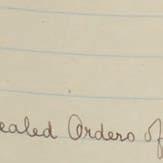 ealed Orders of